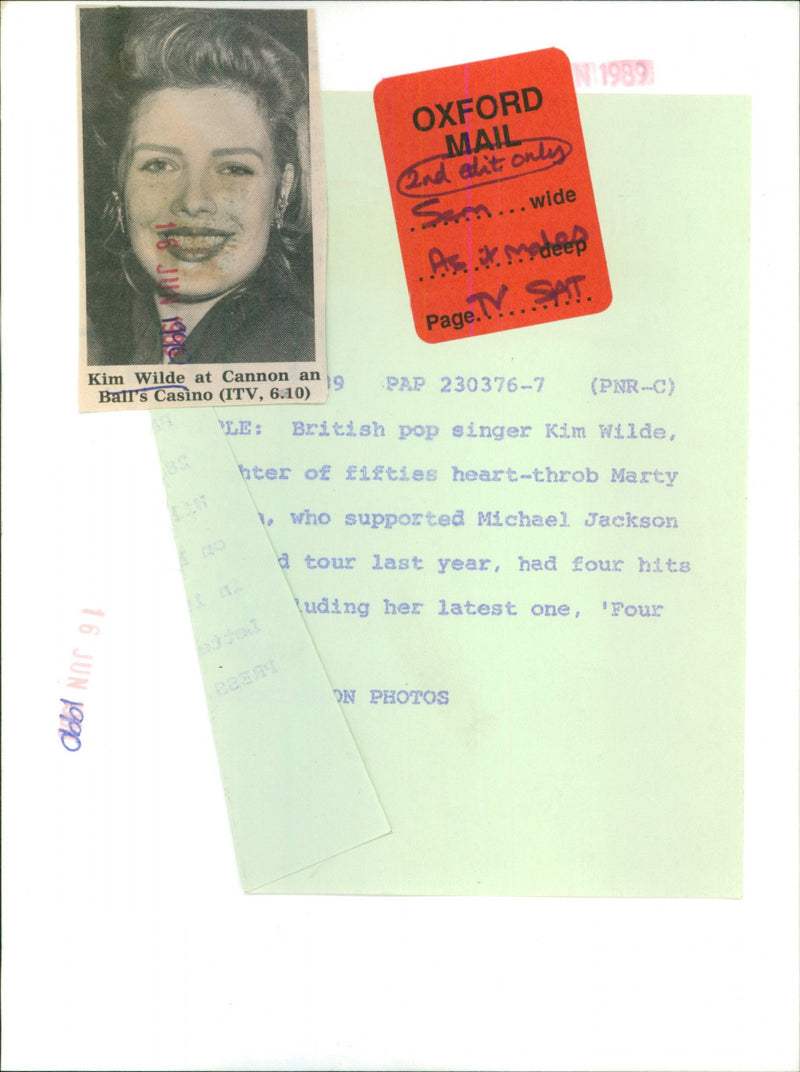 N 1989
OXFORD
MAIL
2nd edit only
5cm wide
As it makes deep
Page TV SAT
16 JUN
1990
Kim Wilde at Cannon an
Ball's Casino (ITV, 6.10)
89 PAP 230376-7 (PNR-C)
PLE: British pop singer Kim Wilde,
hter of fifties heart-throb Marty
, who supported Michael Jackson
d tour last year, had four hits
luding her latest one, 'Four
ON PHOTOS
Lette
PRESS
16 JUN
1990